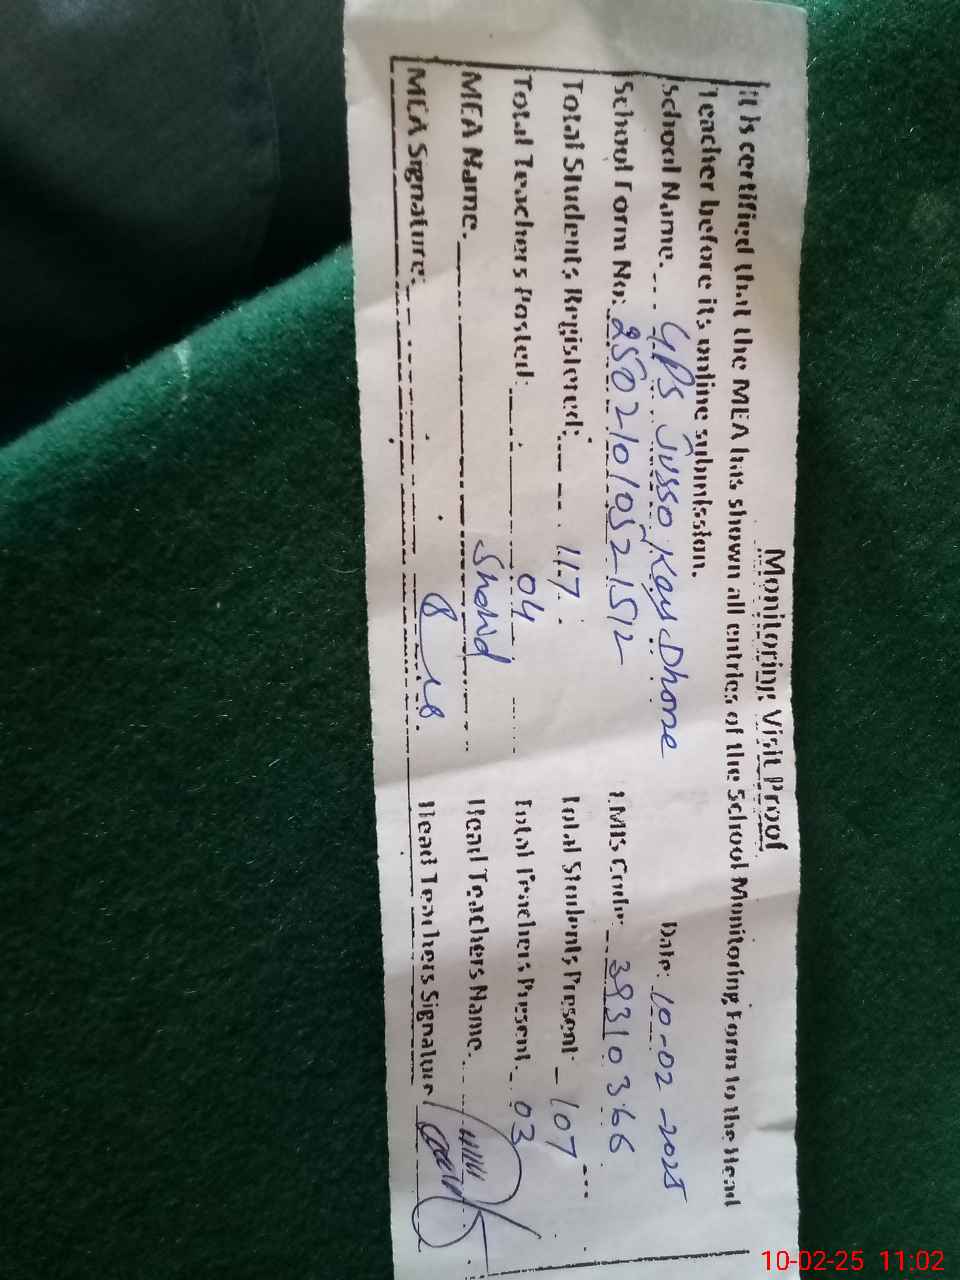 Monitoring Visit Proof
It is certified that the MEA has shown all entries of the School Monitoring Form to the Head
Teacher before its online submission.
School Name. GPS Jusso Kay Dhone Date: 10-02-2025
School Form No: 25021010521512 EMIS Code: 39310366
Total Students Registered: 117 Total Students Present 107
Total Teachers Posted: 04 Total Teachers Present. 03
MEA Name. Shahid Head Teachers Name.
MEA Signature: Head Teachers Signature
10-02-25 11:02